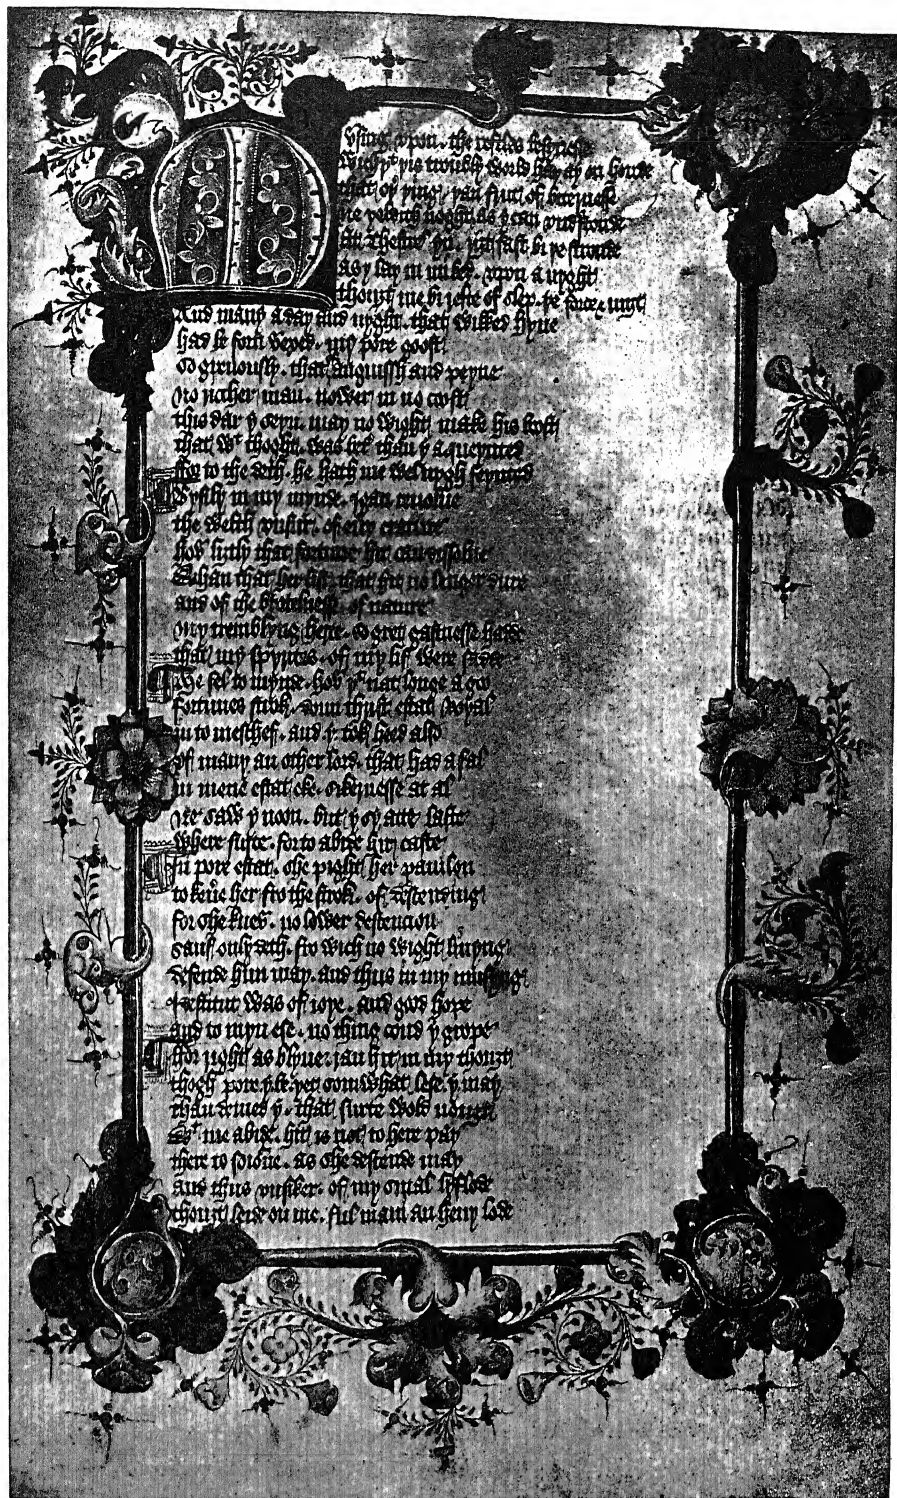 Mvsing vpon. the restles besynesse
Wich þt þis troubly World haþ ay on honde
that oþ þing. þan fruit of bitternesse
ne yeldeth noght as y can vndstonde
att Chestres yn. riȝt fast bi þe stronde
as y lay in my bed. vpon a nyght
thouȝt me bi refte of slep. þe force & miȝt
And many a day and nyght. that Wikked hyne
had be forn vexed. my pore goost
so greuously. that anguissh and peyne
no richer man. noWer in no cost
this dar y seyn. may no Wight make his bost
that Wt thoght. Was bet than y aqueynted
ffor to the deth. he hath me Wel nygh feynted
Bysily in my mynde. y gan reuolue
the Welth vnsur. of eury creature
hoW litly that fortune hit can dissolue
Whan that her list. that hit no lenger dure
and of the brotilnesse. of nature
my tremblyng hert. so gret gastnesse hadde
that my spyrites. of my lif Were sadde
Me fel to mynde. hoW þt nat longe ago
fortunes strok. doun thrist estat royal
in to meschef. and y tok heed also
of many an other lord. that had a fal
in mene estat eke. sikernesse at al
Ne saW y noon. but y sy atte laste
Where surte. forto abide hir caste
In pore estat. she pight her pauilon
to keu'e her fro the strok. of descending
for she kneW. no loWer descencion
sauf only deth. fro Wich no Wight liuyng
defende him may. and thus in my musyng
destitut Was of ioye. and good hope
and to myn ese. no thing coud y grope
ffor right as blyue ran hit in my thouȝt
thogh pore y be. yet somWhat lese. y may
than demed y. that surte Wold nought
Wt me abide. hit is not to here pay
there to soiorne. as she descende may
and thus vnsiker. of my smal lyflode
thouȝt leide on me. ful mani an heuy lode